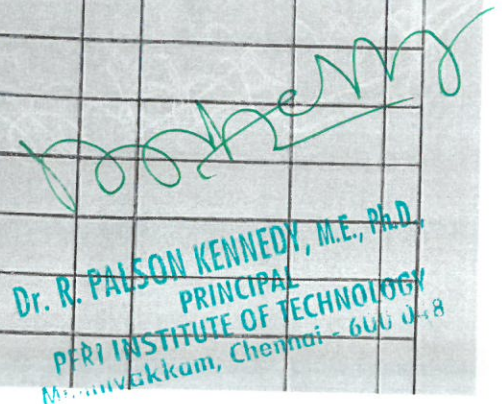 Dr. R. PALSON KENNEDY, M.E., Ph.D.,
PRINCIPAL
PERI INSTITUTE OF TECHNOLOGY
Chennai - 600 048